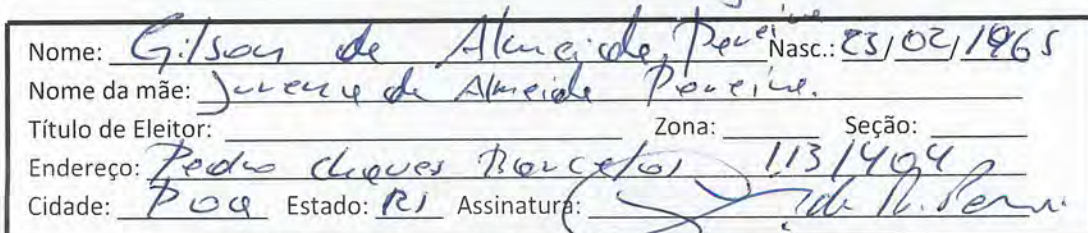 Nome: Gilson de Almeida Pereira Nasc.: 23/02/1965
Nome da mãe: Jurema de Almeida Pereira.
Título de Eleitor: Zona: Seção:
Endereço: Pedro Chaves Barcelos 113/404
Cidade: Poa Estado: RS Assinatura: